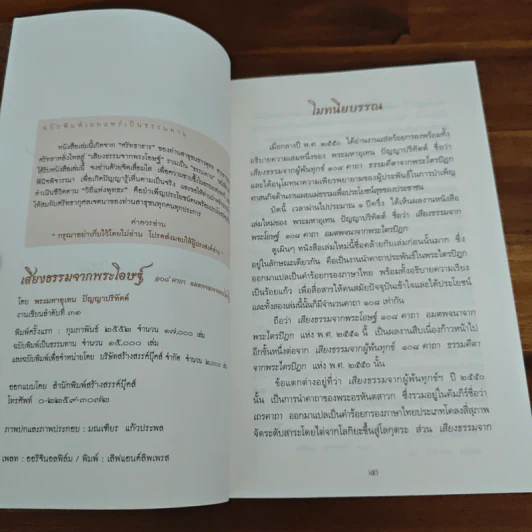 ฉบับพิมพ์เผยแพร่เป็นธรรมทาน
หนังสือเล่มนี้เกิดจาก "ศรัทธาธาร" ของท่านสาธุชน
ศรัทธาหลั่งไหลสู่ "เสียงธรรมจากพระโอษฐ์" รวมเป็น
ได้รับหนังสือเล่มนี้ จงอ่านด้วยจิตเลื่อมใส เพื่อความ
พินิจพิจารณา เพื่อเกิดปัญญารู้เห็นตามเป็นจริง และ
ดำเนินชีวิตตาม "วิถีแห่งพุทธะ" คือบำเพ็ญประโยชน์
ให้สมกับศรัทธากุศลเจตนาของท่านสาธุชนทุกคนทุกประการ
คำควรอ่าน
" กรุณาอย่าเก็บไว้โดยไม่อ่าน โปรดส่งมอบให้ผู้อื่น
เสียงธรรมจากพระโอษฐ์ ๑๐๘ คาถา
โดย พระมหาอุเทน ปัญญาปริทัตต์
งานเขียนลำดับที่ ๓๑
พิมพ์ครั้งแรก : กุมภาพันธ์ ๒๕๕๒ จำนวน ๑๗,๐๐๐ เล่ม
ฉบับพิมพ์เป็นธรรมทาน จำนวน ๑๕,๐๐๐ เล่ม
และฉบับพิมพ์เพื่อจำหน่ายโดย บริษัทสร้างสรรค์บุ๊คส์ จำกัด จำนวน ๒,๐๐๐
ออกแบบโดย สำนักพิมพ์สร้างสรรค์บุ๊คส์
โทรศัพท์
ภาพปกและภาพประกอบ : มณเฑียร แก้วประพล
เพลท : ออริจินอลฟิล์ม / พิมพ์ : เสิฟแอนด์ลิพเพรส
โมทนียบรรณ
เมื่อกลางปี พ.ศ. ๒๕๕๐ ได้อ่านงานแปลร้อยกรองพร้อมทั้ง
อธิบายความเล่มหนึ่งของ พระมหาอุเทน ปัญญาปริทัตต์ ชื่อว่า
เสียงธรรมจากผู้พ้นทุกข์ ๑๐๘ คาถา ธรรมคีตาจากพระไตรปิฎก
และได้อนุโมทนาความเพียรพยายามของผู้ประพันธ์ในการบำเพ็ญ
ศาสนกิจด้านงานเผยแผ่ธรรมเพื่อประโยชน์สุขของประชาชน
บัดนี้ เวลาผ่านไปประมาณ ๑ ปีครึ่ง ได้เห็นผลงานหนังสือ
เล่มใหม่ของ พระมหาอุเทน ปัญญาปริทัตต์ ชื่อว่า เสียงธรรมจาก
พระโอษฐ์ ๑๐๘ คาถา อมตพจนาจากพระไตรปิฎก
ดูเผินๆ หนังสือเล่มใหม่นี้ชื่อคล้ายกับเล่มก่อนนั้นมาก ซึ่ง
อยู่ในลักษณะเดียวกัน คือเป็นงานนำคาถาประพันธ์ในพระไตรปิฎก
ออกมาแปลเป็นคำร้อยกรองภาษาไทย พร้อมทั้งอธิบายความเรียง
เป็นร้อยแก้ว เพื่อสื่อสารให้คนสมัยปัจจุบันเข้าใจและได้ประโยชน์
และทั้งสองเล่มนั้นก็มีจำนวนคาถา ๑๐๘ เท่ากัน
ถือว่า เสียงธรรมจากพระโอษฐ์ ๑๐๘ คาถา อมตพจนาจาก
พระไตรปิฎก แห่ง พ.ศ. ๒๕๕๑ นี้ เป็นผลงานสืบเนื่องก้าวหน้าไป
อีกขั้นหนึ่งต่อจาก เสียงธรรมจากผู้พ้นทุกข์ ๑๐๘ คาถา ธรรมคีตา
จากพระไตรปิฎก แห่ง พ.ศ. ๒๕๕๐ นั้น
ข้อแตกต่างอยู่ที่ว่า เสียงธรรมจากผู้พ้นทุกข์ฯ ปี ๒๕๕๐
นั้น เป็นการนำคาถาของพระอรหันตสาวก ซึ่งรวมอยู่ในคัมภีร์ชื่อว่า
เถรคาถา ออกมาแปลเป็นคำร้อยกรองภาษาไทยประเภทโคลงสี่สุภาพ
จัดระดับสาระโดยไต่จากโลกิยะขึ้นสู่โลกุตระ ส่วน เสียงธรรมจาก